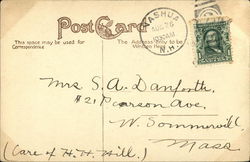 Post Card
NASHUA
N.H.
This space may be used for
Correspondence
The Address only to be
Written Here
Mrs S. A. Danforth,
#21 Pearson Ave,
W. Sommervill
Mass
(Care of H. H. Hill.)